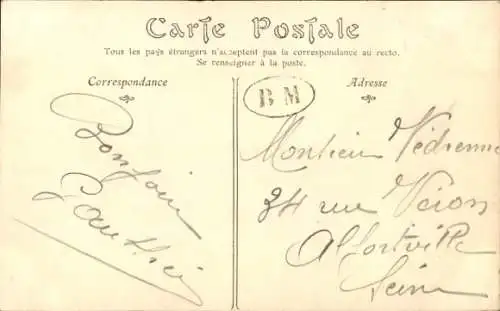 Carte Postale
Tous les pays étrangers n'acceptent pas la correspondance au recto.
Se renseigner à la poste.
Correspondance
Adresse
BM
Bonjour
Gauthier
Monsieur Védrenne
34 rue Véron
Alfortville
Seine